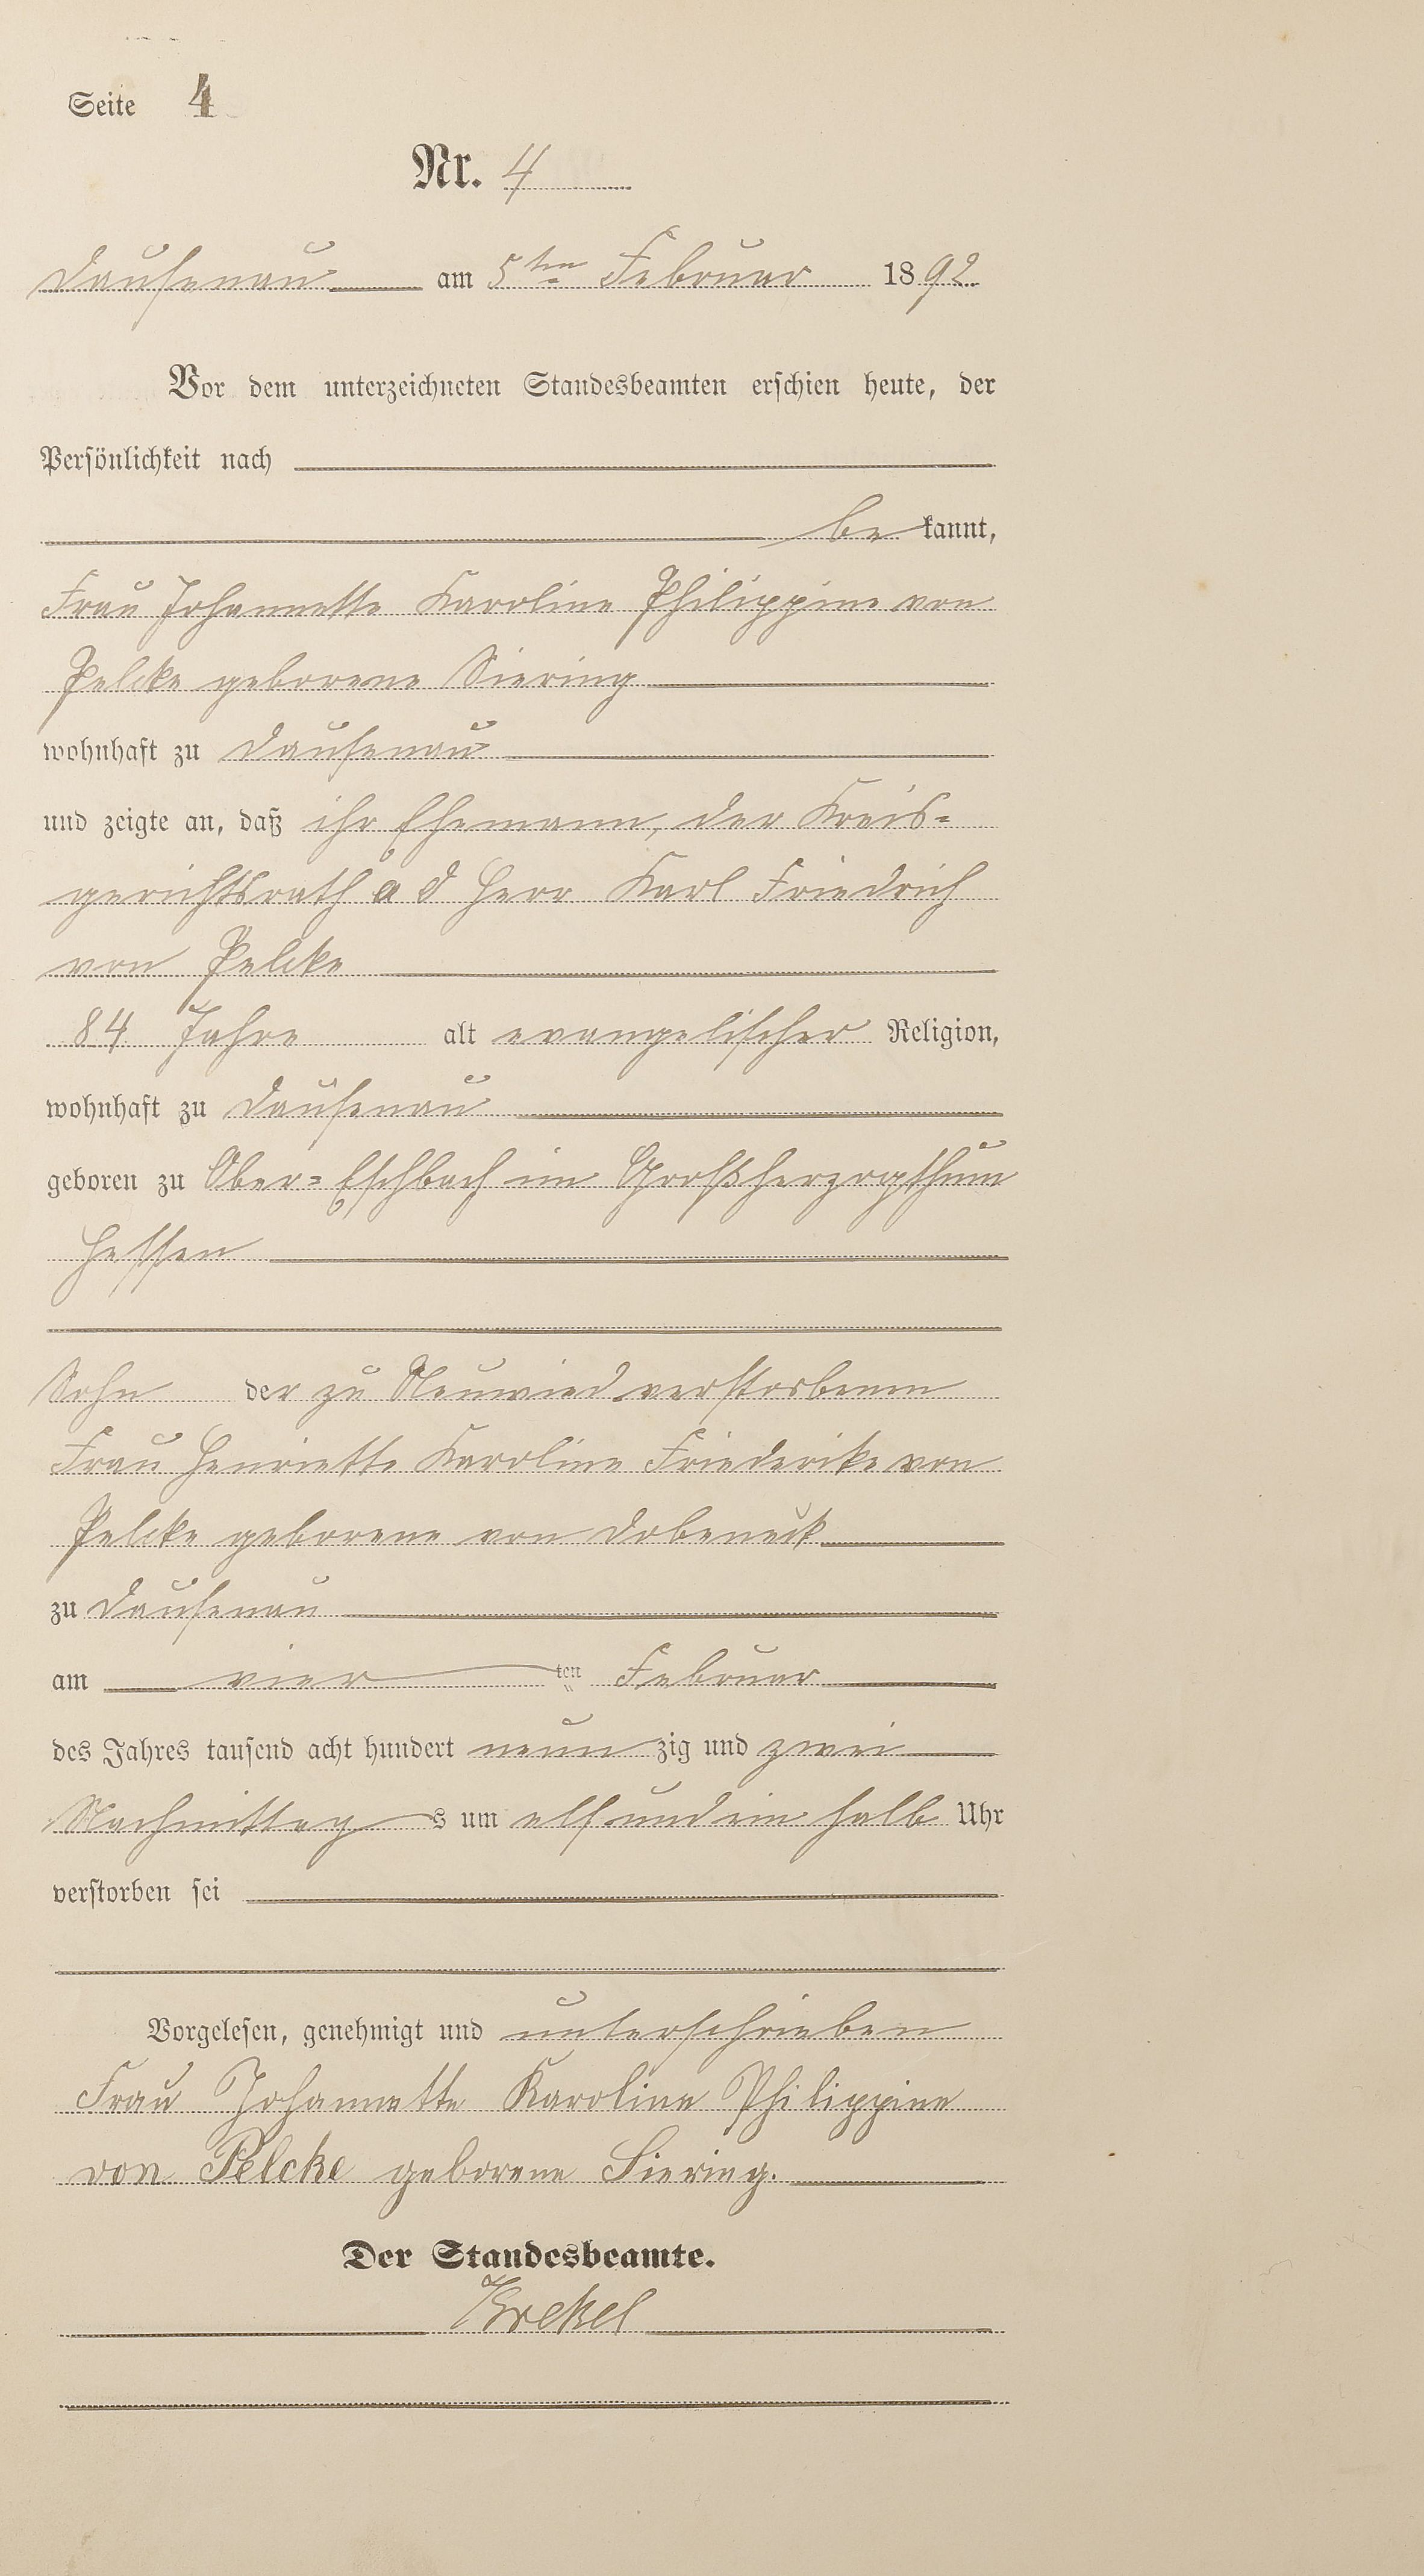 Seite 4
Nr. 4
Dausenau am 5ten Februar 1892
Vor dem unterzeichneten Standesbeamten erschien heute, der
Persönlichkeit nach
be kannt,
Frau Johannette Karoline Philippine von
Pelcke geborene Siering
wohnhaft zu Dausenau
und zeigte an, daß ihr Ehemann, der Kreis=
gerichtsrath a d Herr Karl Friedrich
von Pelcke
84 Jahre alt evangelischer Religion,
wohnhaft zu Dausenau
geboren zu Ober=Eschbach im Großherzogthum
Hessen
Sohn der zu Neuwied verstorbenen
Frau Henriette Karoline Friederike von
Pelcke geborene von Dobeneck
zu Dausenau
am vier ten Februar
des Jahres tausend acht hundert neun zig und zwei
Nachmittag s um elf und ein halb Uhr
verstorben sei
Vorgelesen, genehmigt und unterschrieben
Frau Johannette Karoline Philippine
von Pelcke geborene Siering.
Der Standesbeamte.